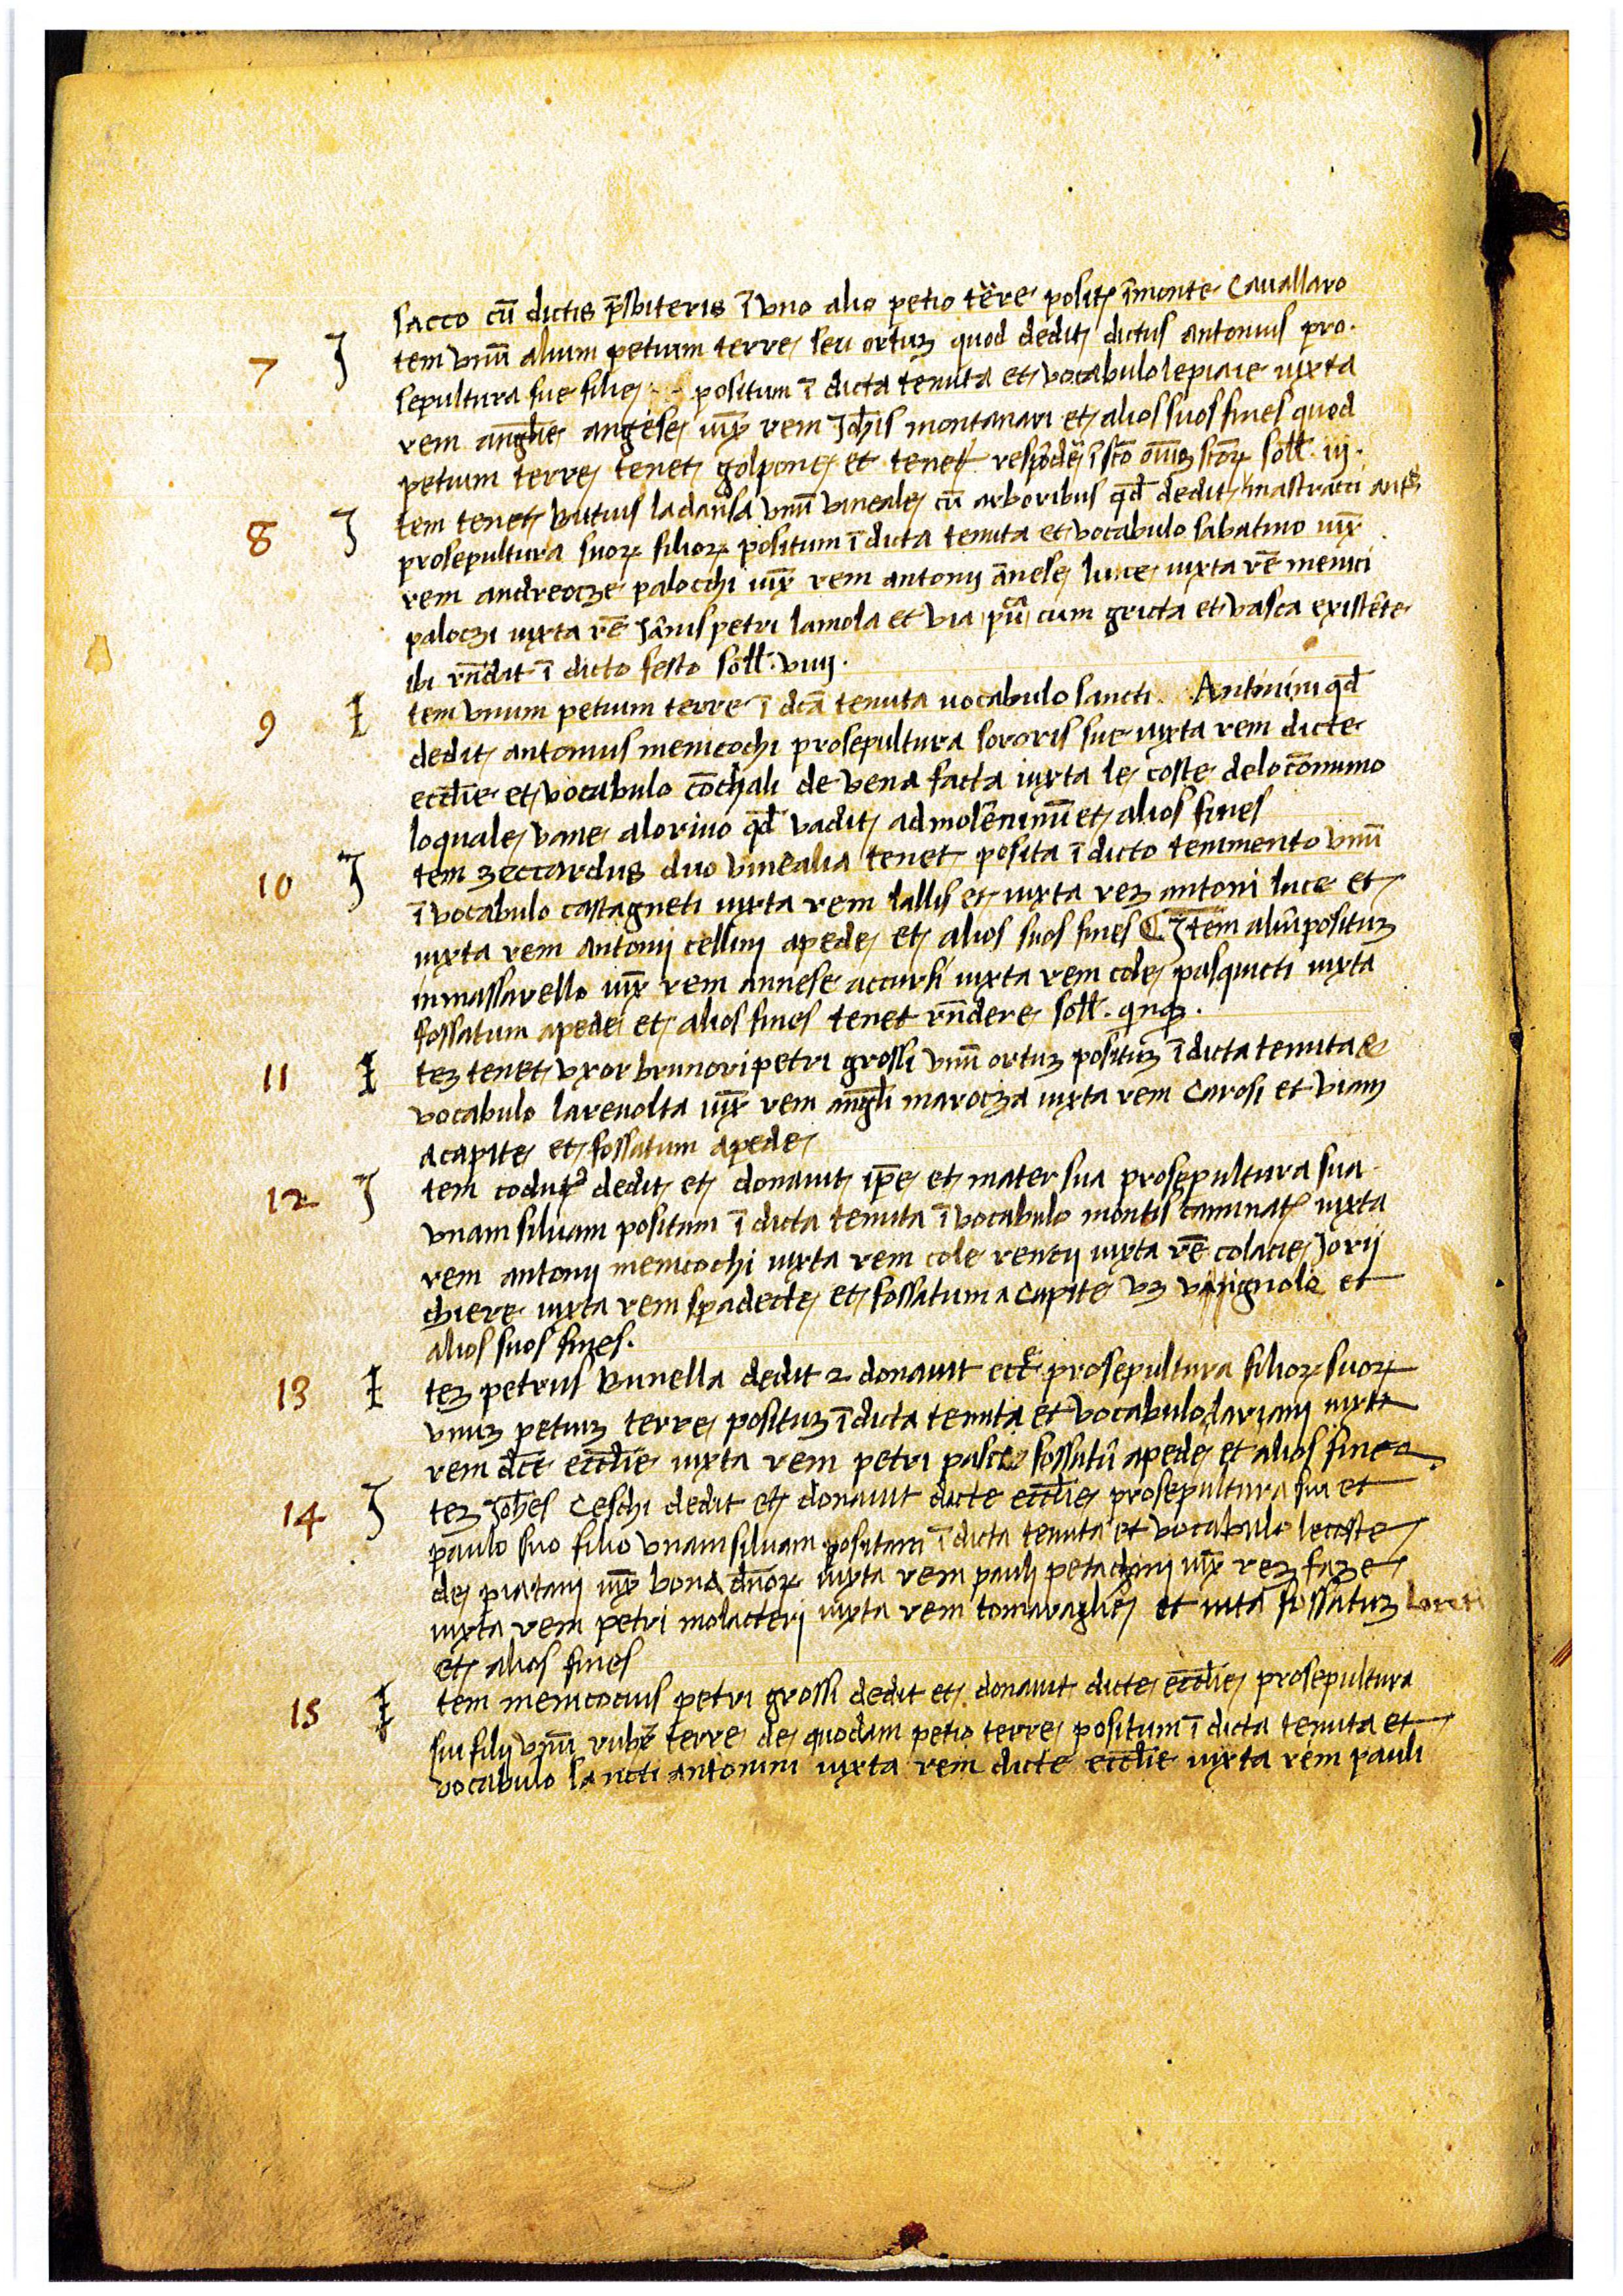 sacco cū dictis p̄sbiteris ī vno alio petio terre posit ī monte Cavallaro
7 Jtem vnū alium petium terre seu ortuȝ quod dedit dictus antonius pro
sepultura sue filie positum ī dicta tenuta et vocabulo lepiaie iuxta
rem angese iux̄ rem Joh̄is montanari et alios suos fines quod
petium terre tenet golpone et tenet ī sc̄o sc̄oꝝ soll. iij.
8 Jtem tenet butius vnū vineale cū arboribus qd̄ dedit mastracci
pro sepultura suoꝝ filioꝝ positum ī dicta tenuta et vocabulo sabatino iux̄
rem andreocze palocchi iux̄ rem antonij ānese luce iuxta rē menici
paloczi iuxta rē Jānis petri lamola et via pu̅ca cum gricta et vasca existēte
ibi rn̄dit ī dicto festo soll. viij.
9 Item vnum petium terre ī dc̄a tenuta vocabulo sancti Antonini qd̄
dedit antonius menicochi pro sepultura sororis sue iuxta rem dicte
eccl̄ie et vocabulo de vena facta iuxta le coste de lo cōmuno
lo quale vane alorivo qd̄ vadit ad et alios fines
10 Jtem zeccardus duo vinealia tenet posita ī dicto tenimento vnū
ī vocabulo castagneti iuxta rem lallis et iuxta reȝ antoni luce et
iuxta rem antonij cellini apede et alios suos fines Jtem aliū posituȝ
in massarello iux̄ rem annese accursi iuxta rem cole pasquicti iuxta
fossatum apede et alios fines tenet rn̄dere soll. qnqȝ.
11 Iteȝ tenet vxor brunori petri grossi vnū ortuȝ posituȝ ī dicta tenuta &
vocabulo larevolta iux̄ rem ang̅li marocza iuxta rem Carosi et viam
a capite et fossatum apede
12 Jtem dedit et donavit ip̄e et mater sua pro sepultura sua
vnam silvam positam ī dicta tenuta ī vocabulo montis caminat iuxta
rem antonij menicochi iuxta rem cole rentij iuxta rē colacie Jorij
chiere iuxta rem spadecte et fossatum a capite vȝ et
alios suos fines.
13 Iteȝ petrus Bunella dedit ⁊ donavit pro sepultura filioꝝ suoꝝ
vnuȝ petiuȝ terre posituȝ ī dicta tenuta et vocabulo iuxta
rem dc̄e eccl̄ie iuxta rem petri fossatū apede et alios fines
14 Jteȝ Joh̄es Ceschi dedit et donavit dicte eccl̄ie pro sepultura sua et
paulo suo filio vnam silvam positam ī dicta tenuta et vocabulo le coste
de piatani iux̄ bona dn̄oꝝ iuxta rem pauli petachini iux̄ reȝ faze
iuxta rem petri molacteri iuxta rem tomaraglie et iuta fossatuȝ
et alios fines
15 Item menicocius petri grossi dedit et donavit dicte eccl̄ie pro sepultura
sui filij vnū rubr̄ terre de quodam petio terre positum ī dicta tenuta et
vocabulo sancti antonini iuxta rem dicte eccl̄ie iuxta rem pauli